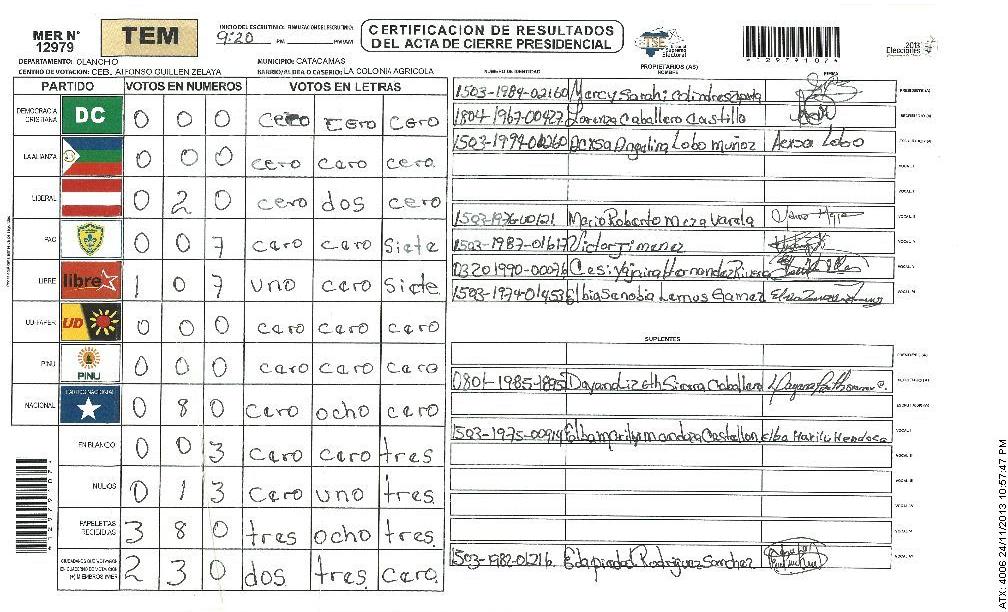 MER N° 12979
TEM
INICIO DEL ESCRUTINIO: FINALIZACION DEL ESCRUTINIO:
9:20 PM PM/AM
CERTIFICACION DE RESULTADOS
DEL ACTA DE CIERRE PRESIDENCIAL
TSE Tribunal Supremo Electoral
2013 Elecciones
1297910741
DEPARTAMENTO: OLANCHO MUNICIPIO: CATACAMAS
CENTRO DE VOTACION: CEB. ALFONSO GUILLEN ZELAYA BARRIO/ALDEA O CASERIO: LA COLONIA AGRICOLA
PARTIDO VOTOS EN NUMEROS VOTOS EN LETRAS
DEMOCRACIA CRISTIANA DC 0 0 0 cero cero cero
LA ALIANZA 0 0 0 cero caro cero
LIBERAL 0 2 0 cero dos cero
PAC 0 0 7 caro caro siete
LIBRE libre 1 0 7 uno caro siete
UD-FAPER UD 0 0 0 caro caro caro
PINU PINU 0 0 0 caro caro caro
NACIONAL PARTIDO NACIONAL 0 8 0 caro ocho caro
EN BLANCO 0 0 3 caro caro tres
NULOS 0 1 3 caro uno tres
PAPELETAS RECIBIDAS 3 8 0 tres ocho tres
2 3 0 dos tres caro
NUMERO DE IDENTIDAD PROPIETARIOS (AS) NOMBRE FIRMA
1503-1984-02160 Mercy Sarahi Colindres PRESIDENTE (A)
1804-1967-00427 Lorenza Caballero Castillo SECRETARIO (A)
Angelina Lobo Muñoz Lobo ESCRUTADOR (A)
VOCAL I
VOCAL II
Mario Roberto Meza Varela VOCAL III
1503-1987-01617 Victor Jimenez VOCAL IV
0320 1990-00076 Cesi Yajaira Hernandez Rivera VOCAL V
1503-1974-01453 Elbia Senobia Lemus Gamez VOCAL VI
SUPLENTES
PRESIDENTE (A)
0801-1985-1895 Dayan Lizeth Sierra Caballero SECRETARIO (A)
ESCRUTADOR (A)
1503-1975-00914 Elba Marily mandoza Castellon Elba Marilu Mendosa VOCAL I
VOCAL II
VOCAL III
VOCAL IV
VOCAL V
1503-1982-01216 Edapiedad Rodriguez Sanchez VOCAL VI
ATX: 4006 24/11/2013 10:57:47 PM